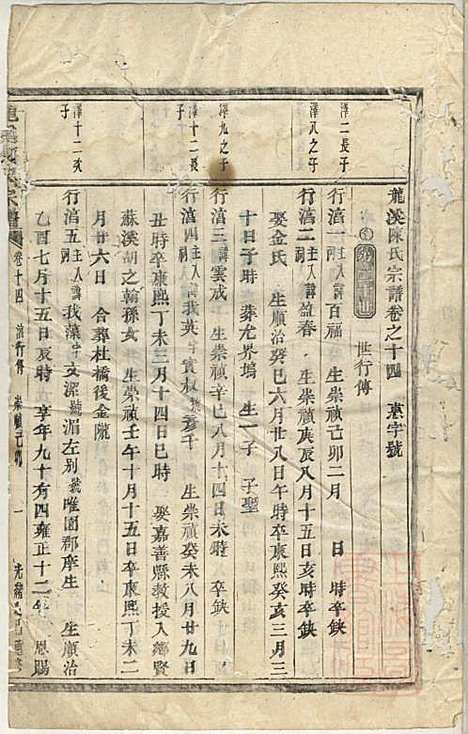 龍溪陳氏宗譜卷之十四 惠字號
世行傳
澤二長子
行濆一 主人諱百福 生崇禎己卯二月 日 時卒鈌
澤八之子
行濆二 主人諱盈春 生崇禎庚辰八月十五日亥時卒鈌
娶金氏 生順治癸巳六月廿八日午時卒康熙癸亥三月三
十日子時 葬尤界塢 生一子 子聖
澤九之子
行濆三 主人諱雲成 生崇禎辛巳八月十四日未時 卒鈌
澤十二長子
行濆四 主人諱我英字賓叔 生崇禎癸未八月廿九日
丑時卒康熙丁未三月十四日巳時 娶嘉善縣教授入鄉賢
蘇溪胡之翰孫女 生崇禎壬午十月十五日卒康熙丁未二
月廿六日 合葬杜橋後金隴
澤十二次子
行濆五 主人諱我藻字 號湄左別號唯園郡庠生 生順治
乙酉七月十五日辰時 享年九十有四雍正十二年 恩賜
卷十四 行傳 一